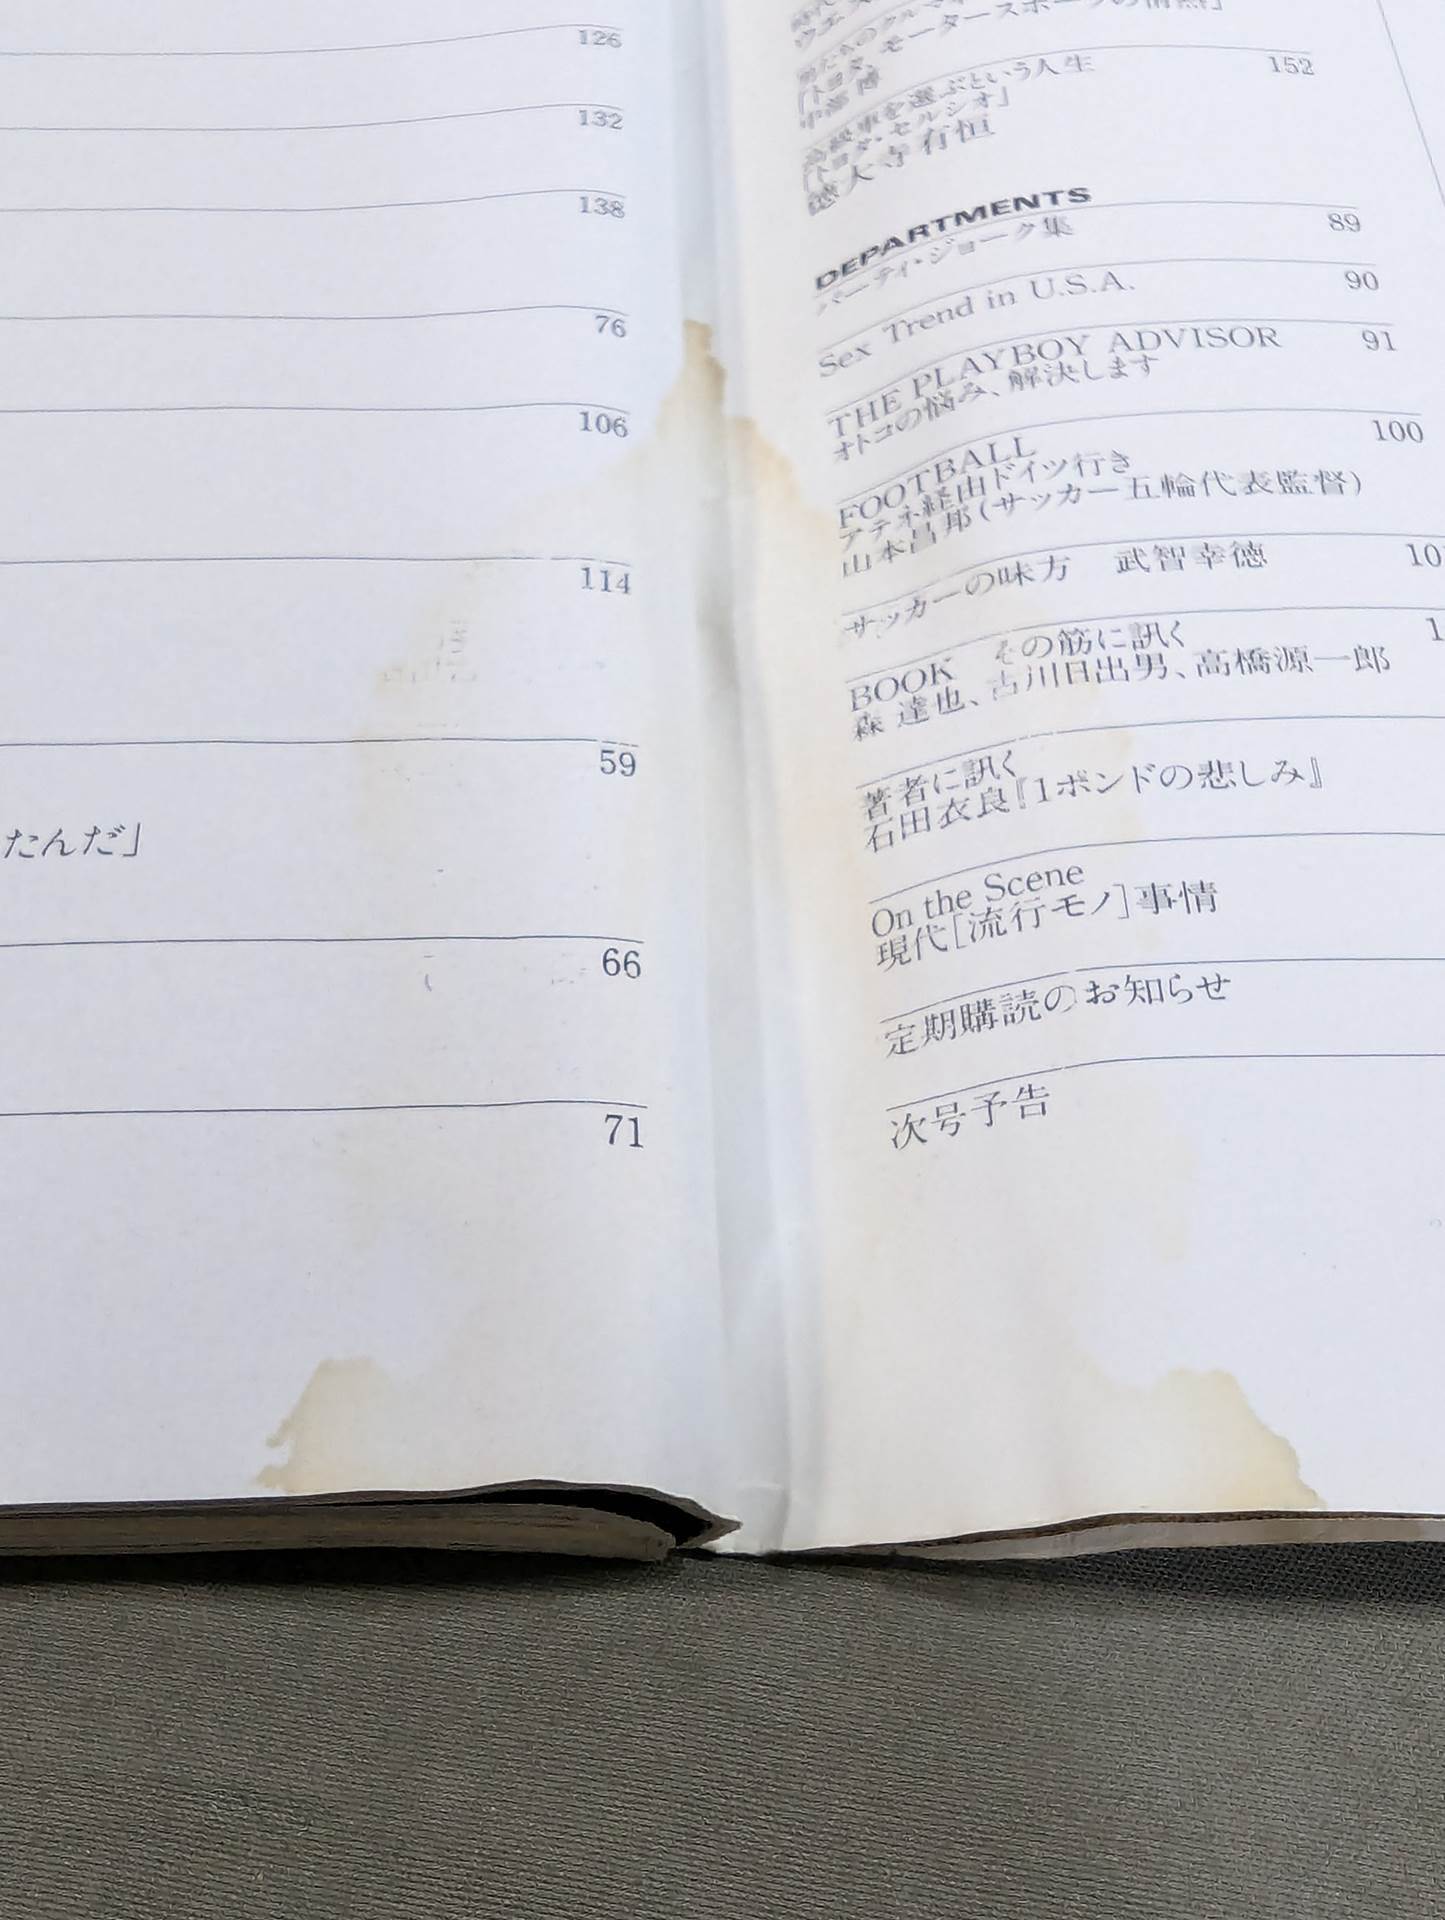 126
132
138
76
106
114
59
たんだ」
66
71
「トヨタ、モータースポーツの情熱」
中部 博
高級車を選ぶという人生 152
「トヨタ・セルシオ」
徳大寺有恒
DEPARTMENTS
パーティ・ジョーク集 89
Sex Trend in U.S.A. 90
THE PLAYBOY ADVISOR 91
オトコの悩み、解決します
FOOTBALL 100
アテネ経由ドイツ行き
山本昌邦(サッカー五輪代表監督)
サッカーの味方 武智幸徳 10
BOOK その筋に訊く 1
森 達也、古川日出男、高橋源一郎
著者に訊く
石田衣良『1ポンドの悲しみ』
On the Scene
現代[流行モノ]事情
定期購読のお知らせ
次号予告